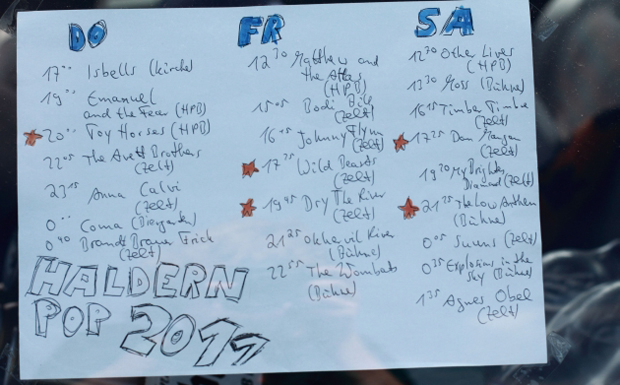 DO
17⁰⁰ Isbells (Kirche)
19⁰⁰ Emanuel
and the Fear (HPB)
20⁰⁰ Toy Horses (HPB)
22⁰⁵ The Avett Brothers
(Zelt)
23¹⁵ Anna Calvi
(Zelt)
0⁰⁰ Coma (Biergarten)
0⁴⁰ Brandt Brauer Frick
(Zelt)
HALDERN
POP 2011
FR
12³⁰ Matthew and
the Atlas
(HPB)
15⁰⁵ Bodi Bill
(Zelt)
16¹⁵ Johnny Flynn
(Zelt)
17³⁵ Wild Beasts
(Zelt)
19⁴⁵ Dry The River
(Zelt)
21²⁵ Okkervil River
(Bühne)
22⁵⁵ The Wombats
(Bühne)
SA
12³⁰ Other Lives
(HPB)
13³⁰ Moss (Bühne)
16¹⁵ Timber Timbre
(Zelt)
17³⁵ Dan Mangan
(Zelt)
19²⁰ My Brightest
Diamond (Zelt)
21²⁵ The Low Anthem
(Bühne)
0⁰⁵ Suuns (Zelt)
0³⁵ Explosions in the
Sky (Bühne)
1³⁵ Agnes Obel
(Zelt)